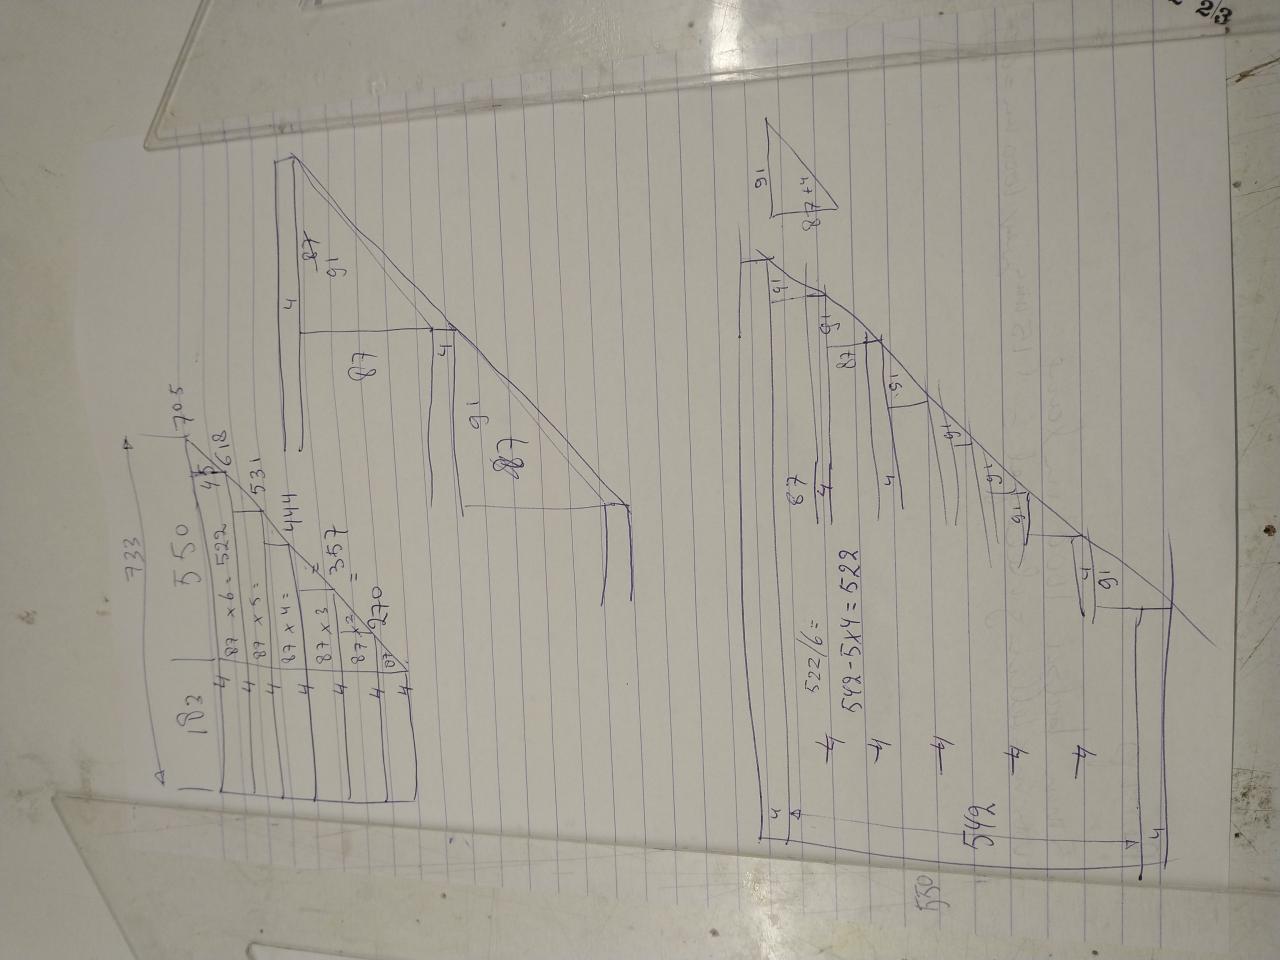 733
183
550
705
4
87 x 6 = 522
45
618
4
87 x 5 =
531
4
87 x 4 =
444
4
87 x 3
= 357
4
87 x 2 =
270
4
87
4
4
87
91
87
4
91
87
91
87 + 4
4
91
91
87
4
87
4
91
4
91
91
91
4
91
522/6 =
542 - 5x4 = 522
4
4
4
4
4
542
550
4
2/3